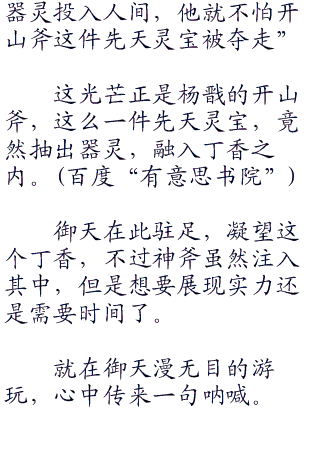 器灵投入人间，他就不怕开
山斧这件先天灵宝被夺走”
这光芒正是杨戬的开山
斧，这么一件先天灵宝，竟
然抽出器灵，融入丁香之
内。(百度“有意思书院”)
御天在此驻足，凝望这
个丁香，不过神斧虽然注入
其中，但是想要展现实力还
是需要时间了。
就在御天漫无目的游
玩，心中传来一句呐喊。